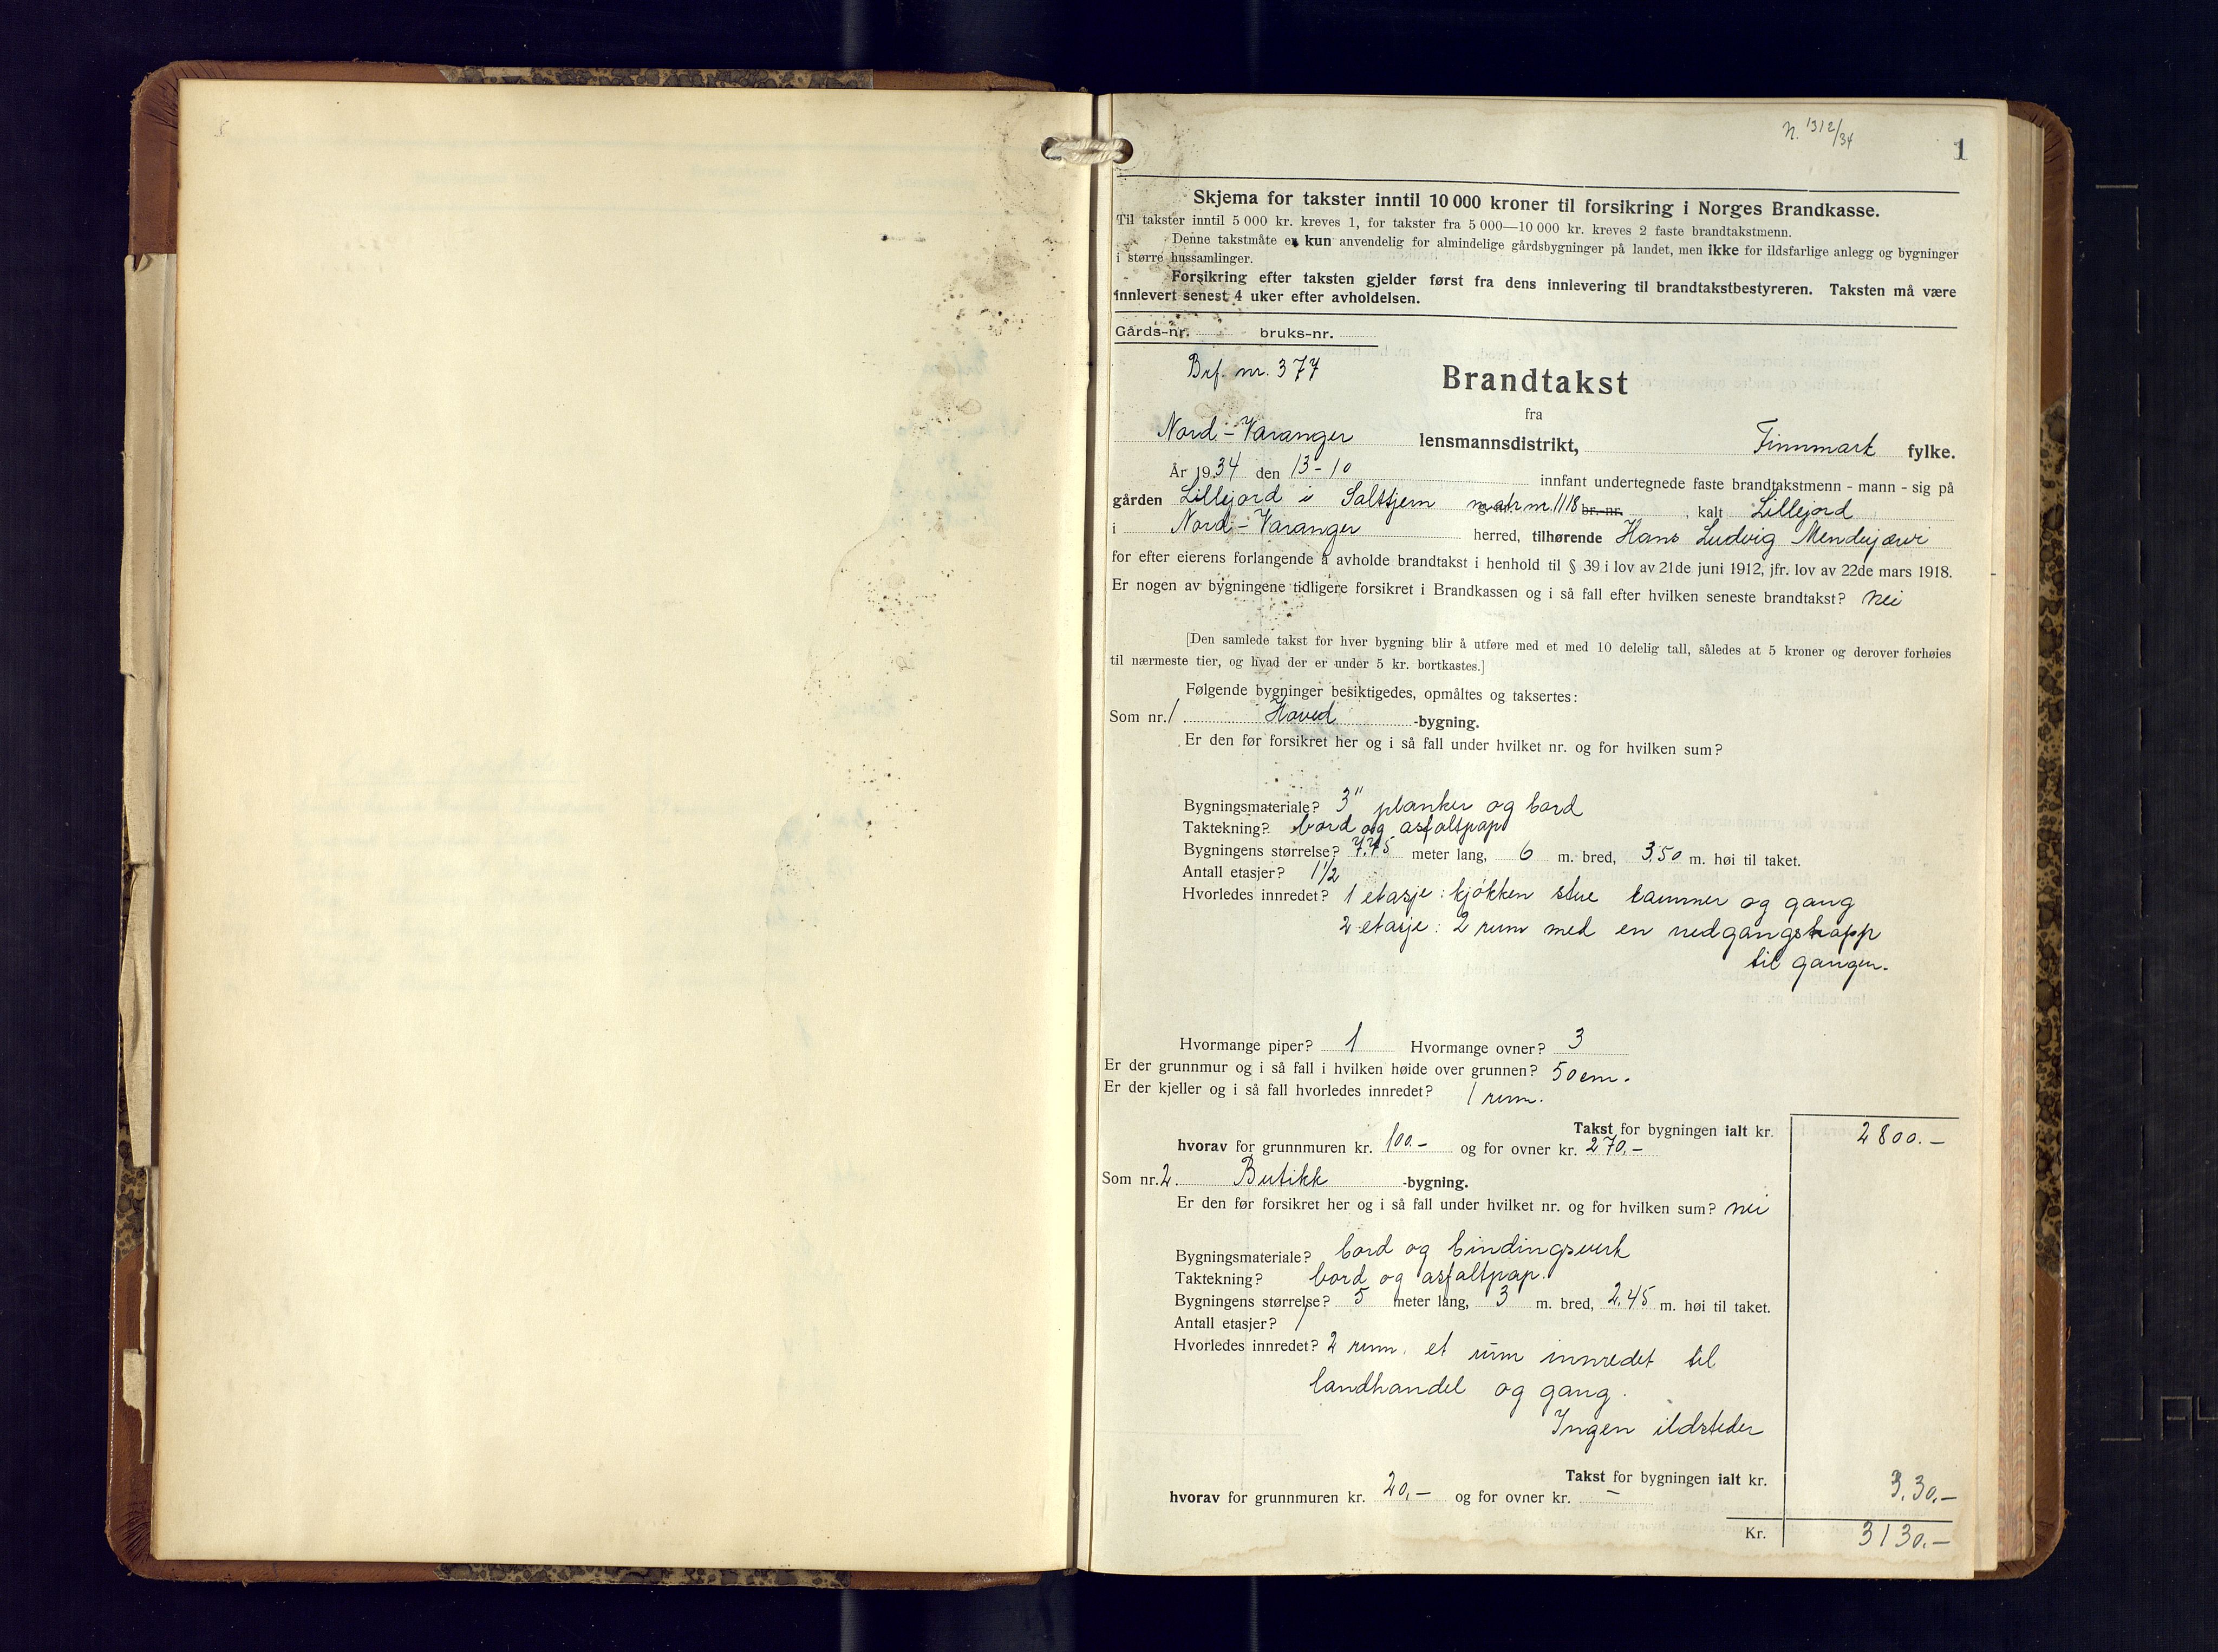 N. 1312/34
1
Skjema for takster inntil 10 000 kroner til forsikring i Norges Brandkasse.
Til takster inntil 5 000 kr. kreves 1, for takster fra 5 000—10 000 kr. kreves 2 faste brandtakstmenn.
Denne takstmåte er kun anvendelig for almindelige gårdsbygninger på landet, men ikke for ildsfarlige anlegg og bygninger
i større hussamlinger.
Forsikring efter taksten gjelder først fra dens innlevering til brandtakstbestyreren. Taksten må være
innlevert senest 4 uker efter avholdelsen.
Gårds-nr. bruks-nr.
Brf. nr. 377
Brandtakst
fra
Nord-Varanger lensmannsdistrikt, Finnmark fylke.
År 1934 den 13-10 innfant undertegnede faste brandtakstmenn - mann - sig på
gården Lillejord i Saltjern matr nr. 1118 br.-nr. , kalt Lillejord
i Nord-Varanger herred, tilhørende Hans Ludvig Mendijærvi
for efter eierens forlangende å avholde brandtakst i henhold til § 39 i lov av 21de juni 1912, jfr. lov av 22de mars 1918.
Er nogen av bygningene tidligere forsikret i Brandkassen og i så fall efter hvilken seneste brandtakst? nei
[Den samlede takst for hver bygning blir å utføre med et med 10 delelig tall, således at 5 kroner og derover forhøies
til nærmeste tier, og hvad der er under 5 kr. bortkastes.]
Følgende bygninger besiktigedes, opmåltes og taksertes:
Som nr. 1 Hoved -bygning.
Er den før forsikret her og i så fall under hvilket nr. og for hvilken sum?
Bygningsmateriale? 3" planker og bord
Taktekning? bord og asfaltpap
Bygningens størrelse? 7.75 meter lang, 6 m. bred, 3.50 m. høi til taket.
Antall etasjer? 1 1/2
Hvorledes innredet? 1 etasje: kjøkken stue kammer og gang
2 etasje: 2 rum med en nedgangstrapp
til gangen.
Hvormange piper? 1 Hvormange ovner? 3
Er der grunnmur og i så fall i hvilken høide over grunnen? 50 cm.
Er der kjeller og i så fall hvorledes innredet? 1 rum.
Takst for bygningen ialt kr. 2800.-
hvorav for grunnmuren kr. 100.- og for ovner kr. 270.-
Som nr. 2. Butikk -bygning.
Er den før forsikret her og i så fall under hvilket nr. og for hvilken sum? nei
Bygningsmateriale? bord og bindingsverk
Taktekning? bord og asfaltpap.
Bygningens størrelse? 5 meter lang, 3 m. bred, 2.45 m. høi til taket.
Antall etasjer? 1
Hvorledes innredet? 2 rum. et rum innredet til
landhandel og gang.
Ingen ildsteder
Takst for bygningen ialt kr. 3.30.-
hvorav for grunnmuren kr. 20.- og for ovner kr. -
Kr. 3130.-